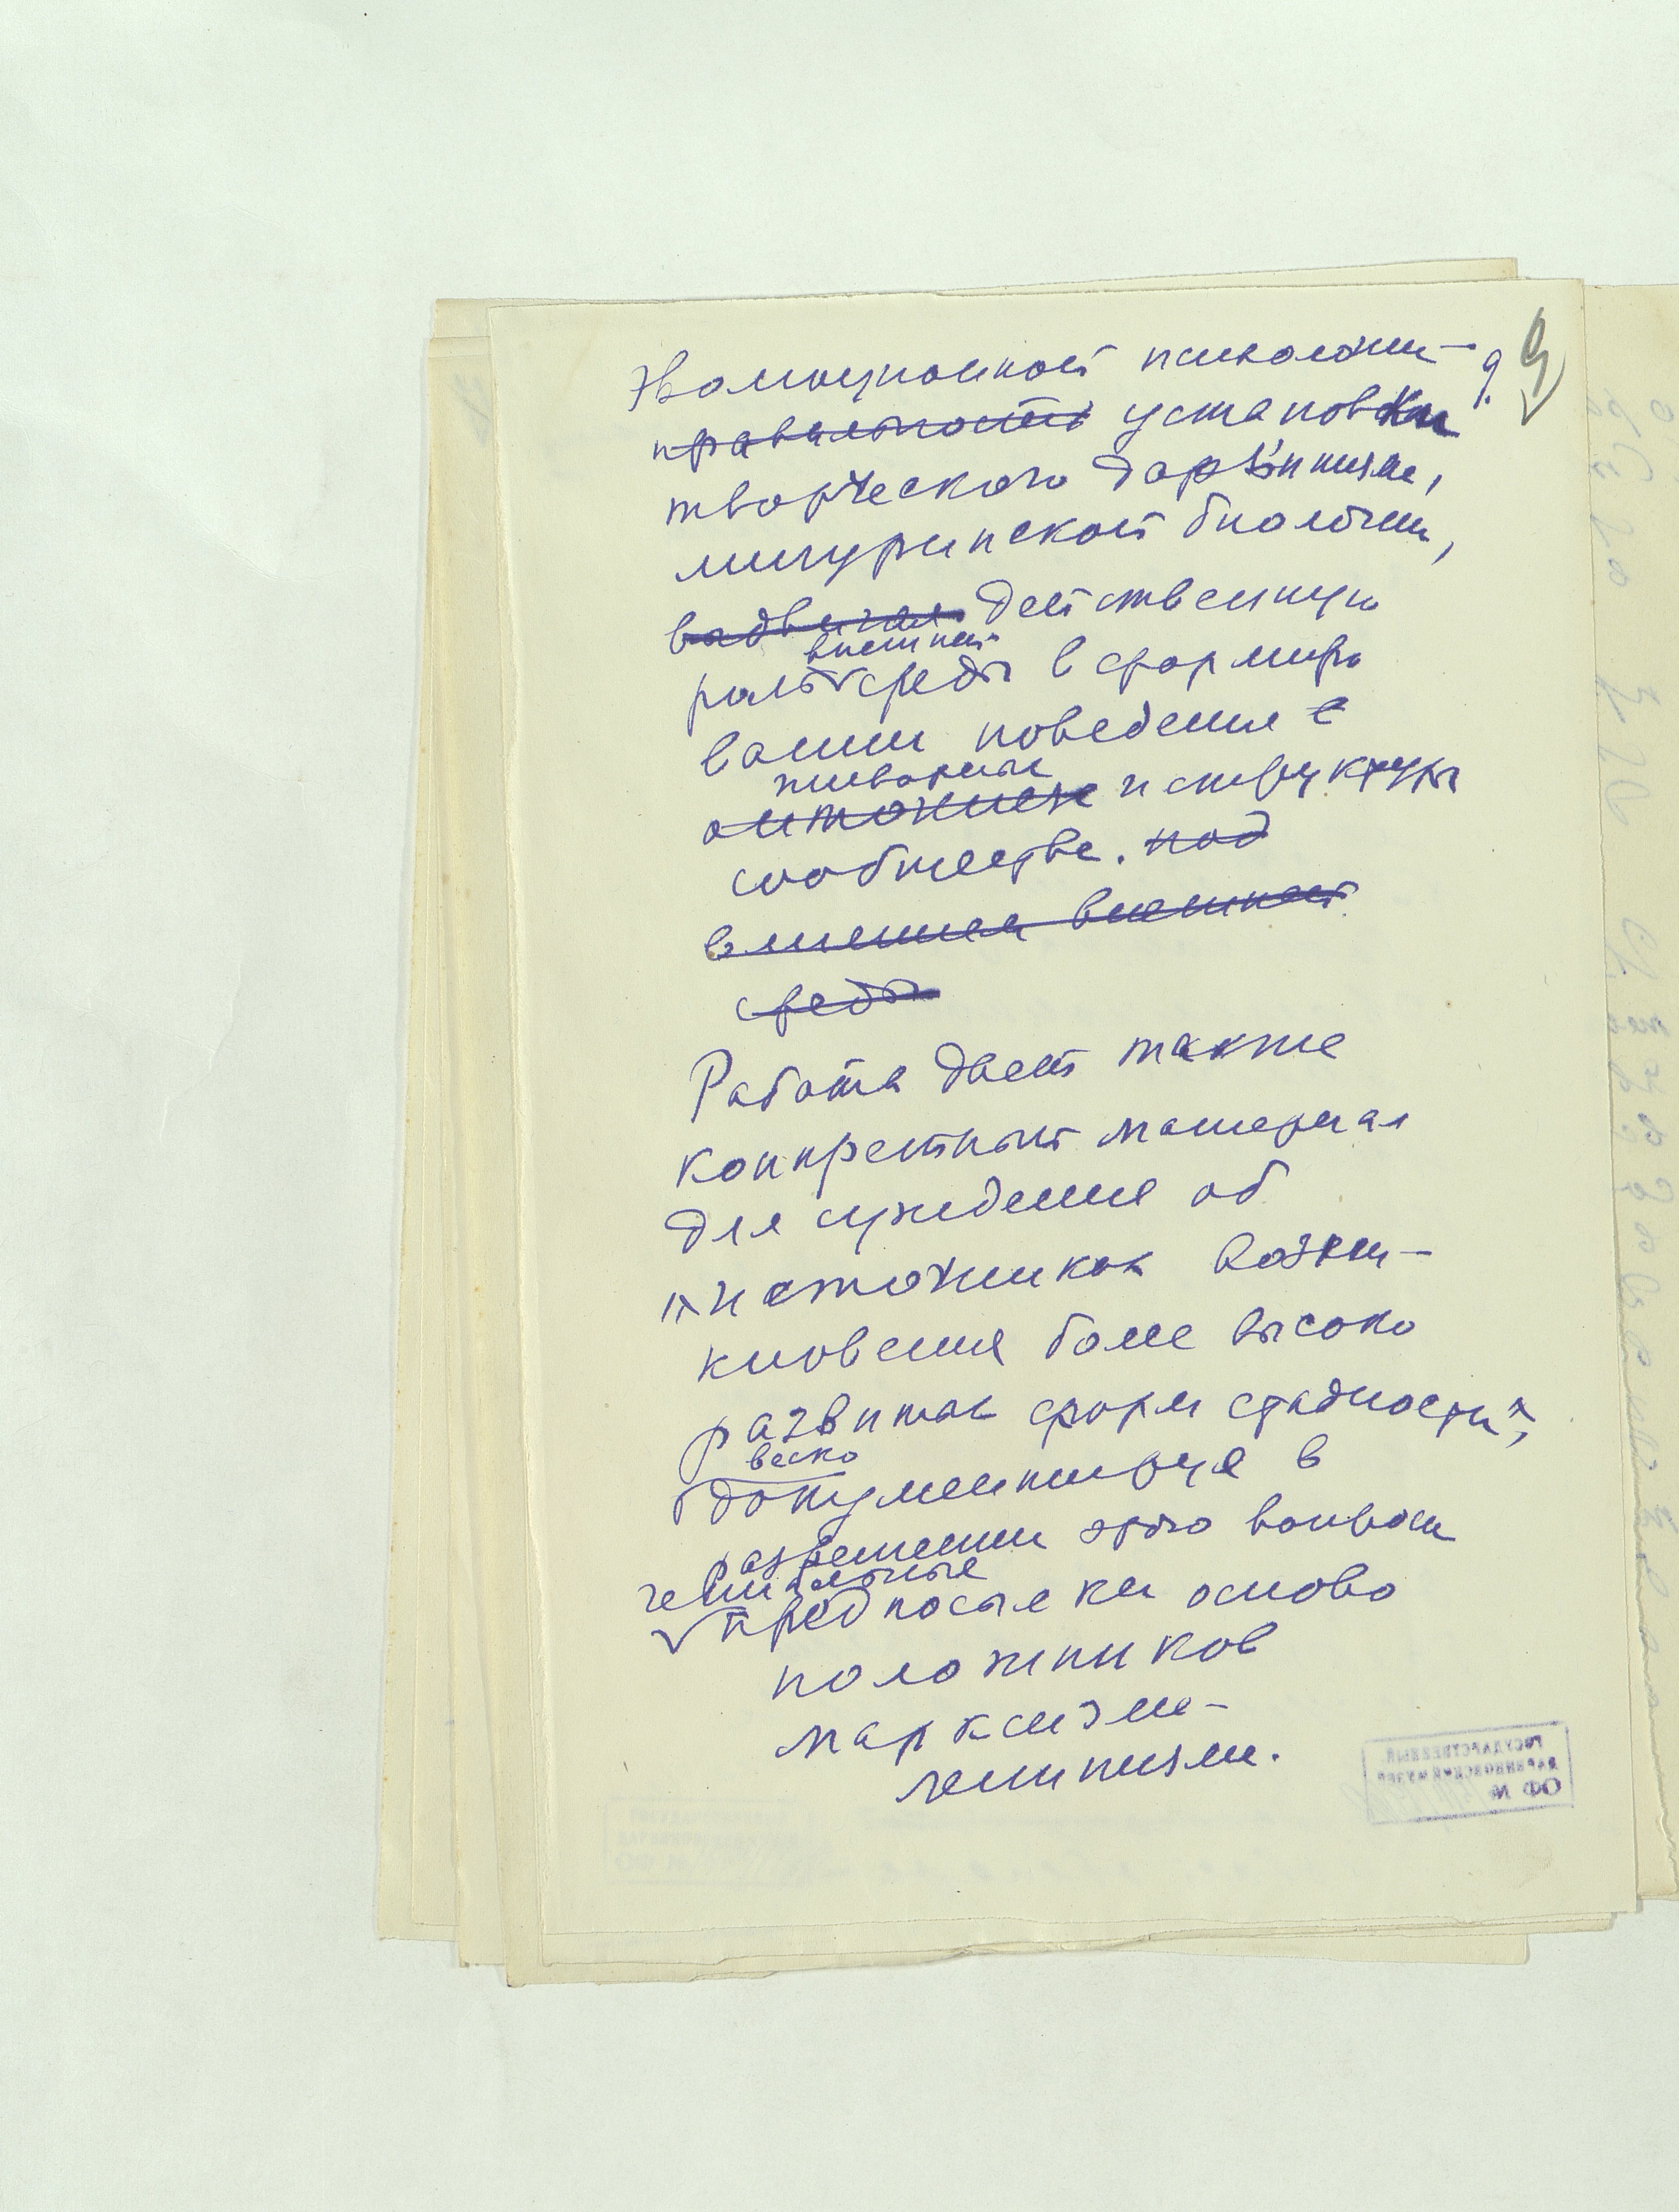 эволюционной психологии – 9.
9
правильность установки
творческого дарвинизма,
мичуринской биологии,
выдвигая действенную
внешней
роль среды в формиро
вании поведения с
животных
и структуры
сообщества. под
влиянием внешней
среды
Работа дает также
конкретный материал
для суждения об
источниках возни-
кновения более высоко
развитых форм стадности",
веско
документируя в
разрешении этого вопроса
гениальные
предпосылки осново
положников
марксизма-
ленинизма.
ГОСУДАРСТВЕННЫЙ
ДАРВИНОВСКИЙ МУЗЕЙ
ОФ №